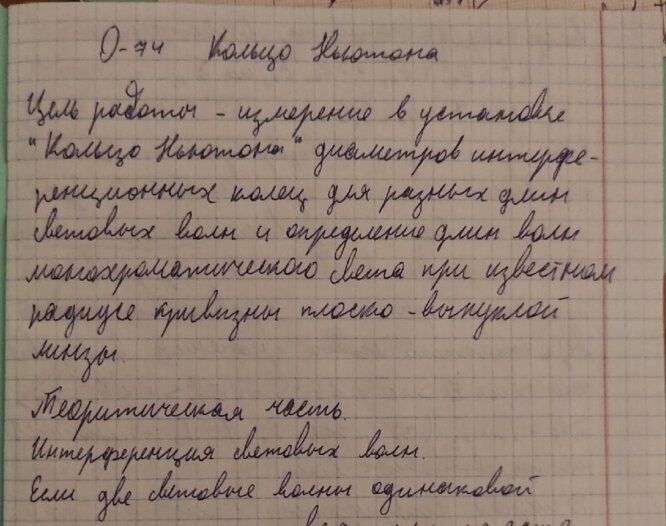 О-74 Кольцо Ньютона
Цель работы - измерение в установке
"Кольцо Ньютона" диаметров интерфе-
ренционных колец для разных длин
световых волн и определение длин волн
монохроматического света при известном
радиусе кривизны плоско-выпуклой
линзы.
Теоритическая часть.
Интерференция световых волн.
Если две световые волны одинаковой